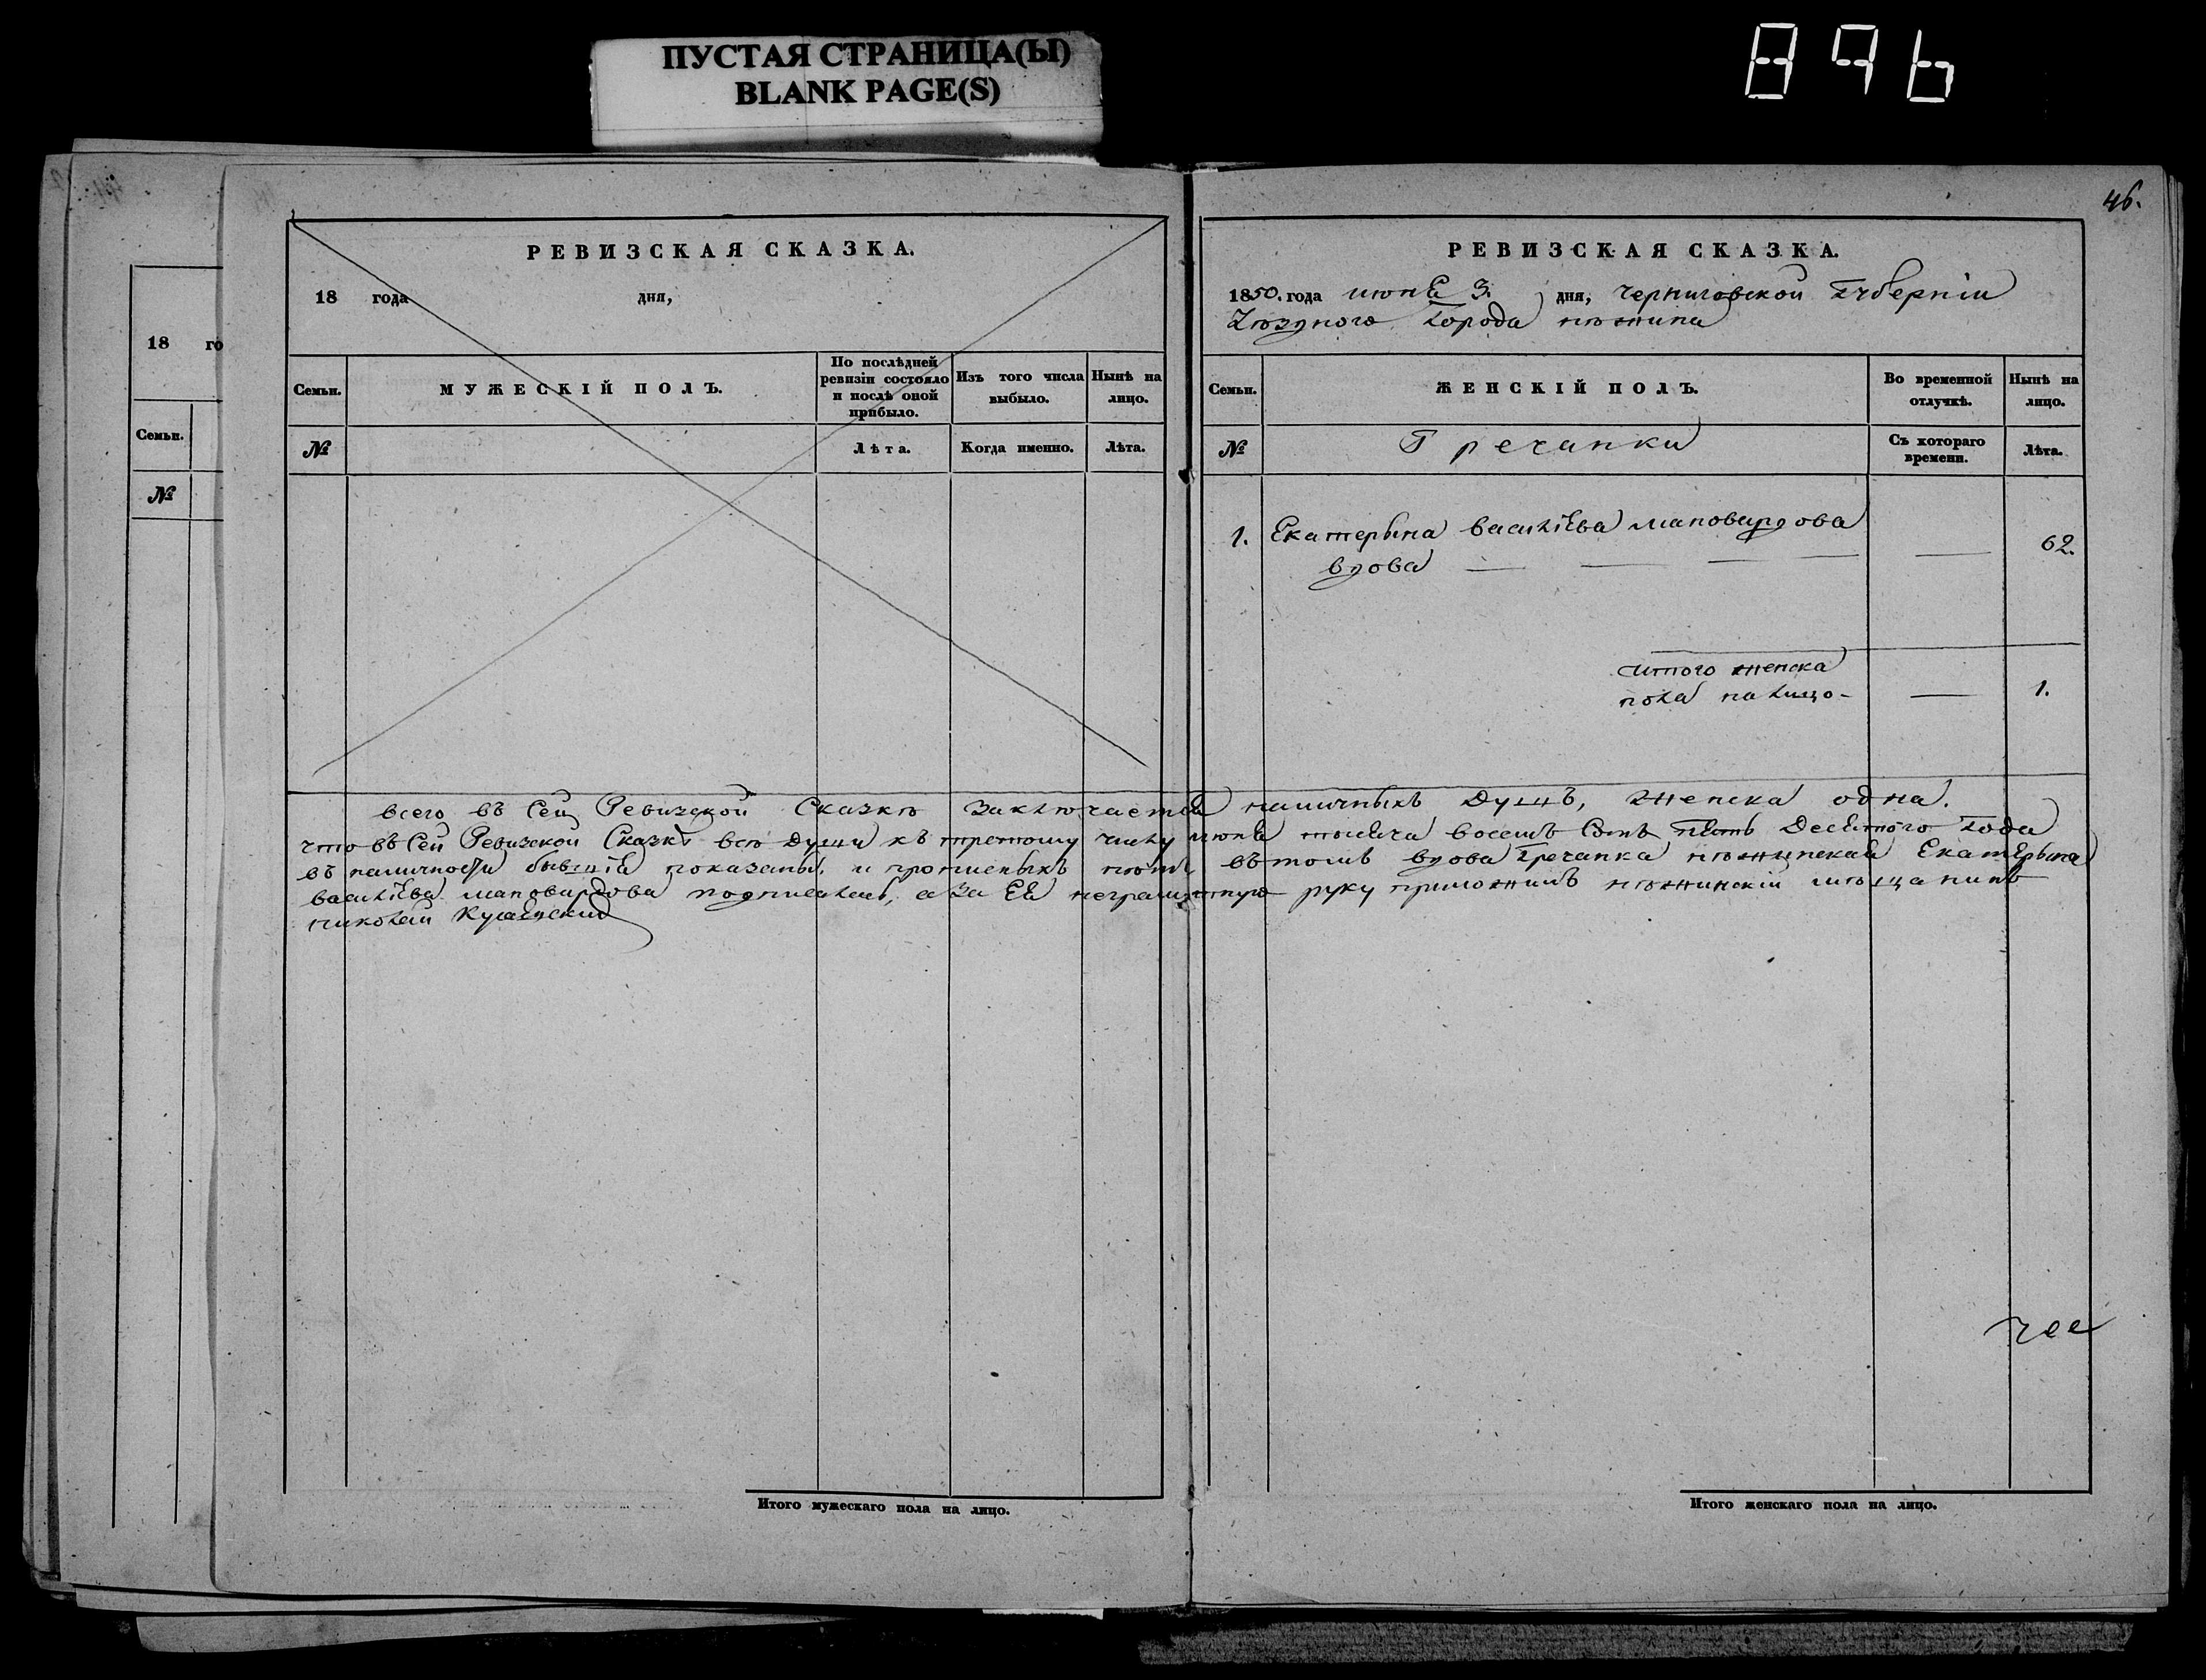 ПУСТАЯ СТРАНИЦА(Ы)
BLANK PAGE(S)
896
18 го
Семьи.
№
РЕВИЗСКАЯ СКАЗКА.
18 года дня,
Семьи.
МУЖЕСКІЙ ПОЛЪ.
По послѣдней
ревизіи состояло
и послѣ оной
прибыло.
Изъ того числа
выбыло.
Нынѣ на
лицо.
№
Лѣта.
Когда именно.
Лѣта.
46.
РЕВИЗСКАЯ СКАЗКА.
1850. года июня 3. дня, Черниговской Губерніи
Уезднаго города нѣжина
Семьи.
ЖЕНСКІЙ ПОЛЪ.
Во временной
отлучкѣ.
Нынѣ на
лицо.
№
Гречанки
Съ котораго
времени.
Лѣта.
1. Екатерына Василіева маповардова
вдова — — — — 62.
итого женска
пола налицо - — 1.
всего въ Сей Ревизской Сказкѣ заключается наличныхъ Душъ, женска одна.
что въ Сей Ревизской Сказкѣ всѣ души къ третому числу июня тысяча восемъ Сотъ пять Десятого года
въ наличности бывшія показаны, и прописныхъ нѣтъ въ томъ вдова гречанка нѣжинская Екатерына
Василіева маповардова подписалась, а за Ея неграмотную руку приложилъ нѣжинскій мѣщанинъ
николай
Итого мужескаго пола на лицо.
Итого женскаго пола на лицо.